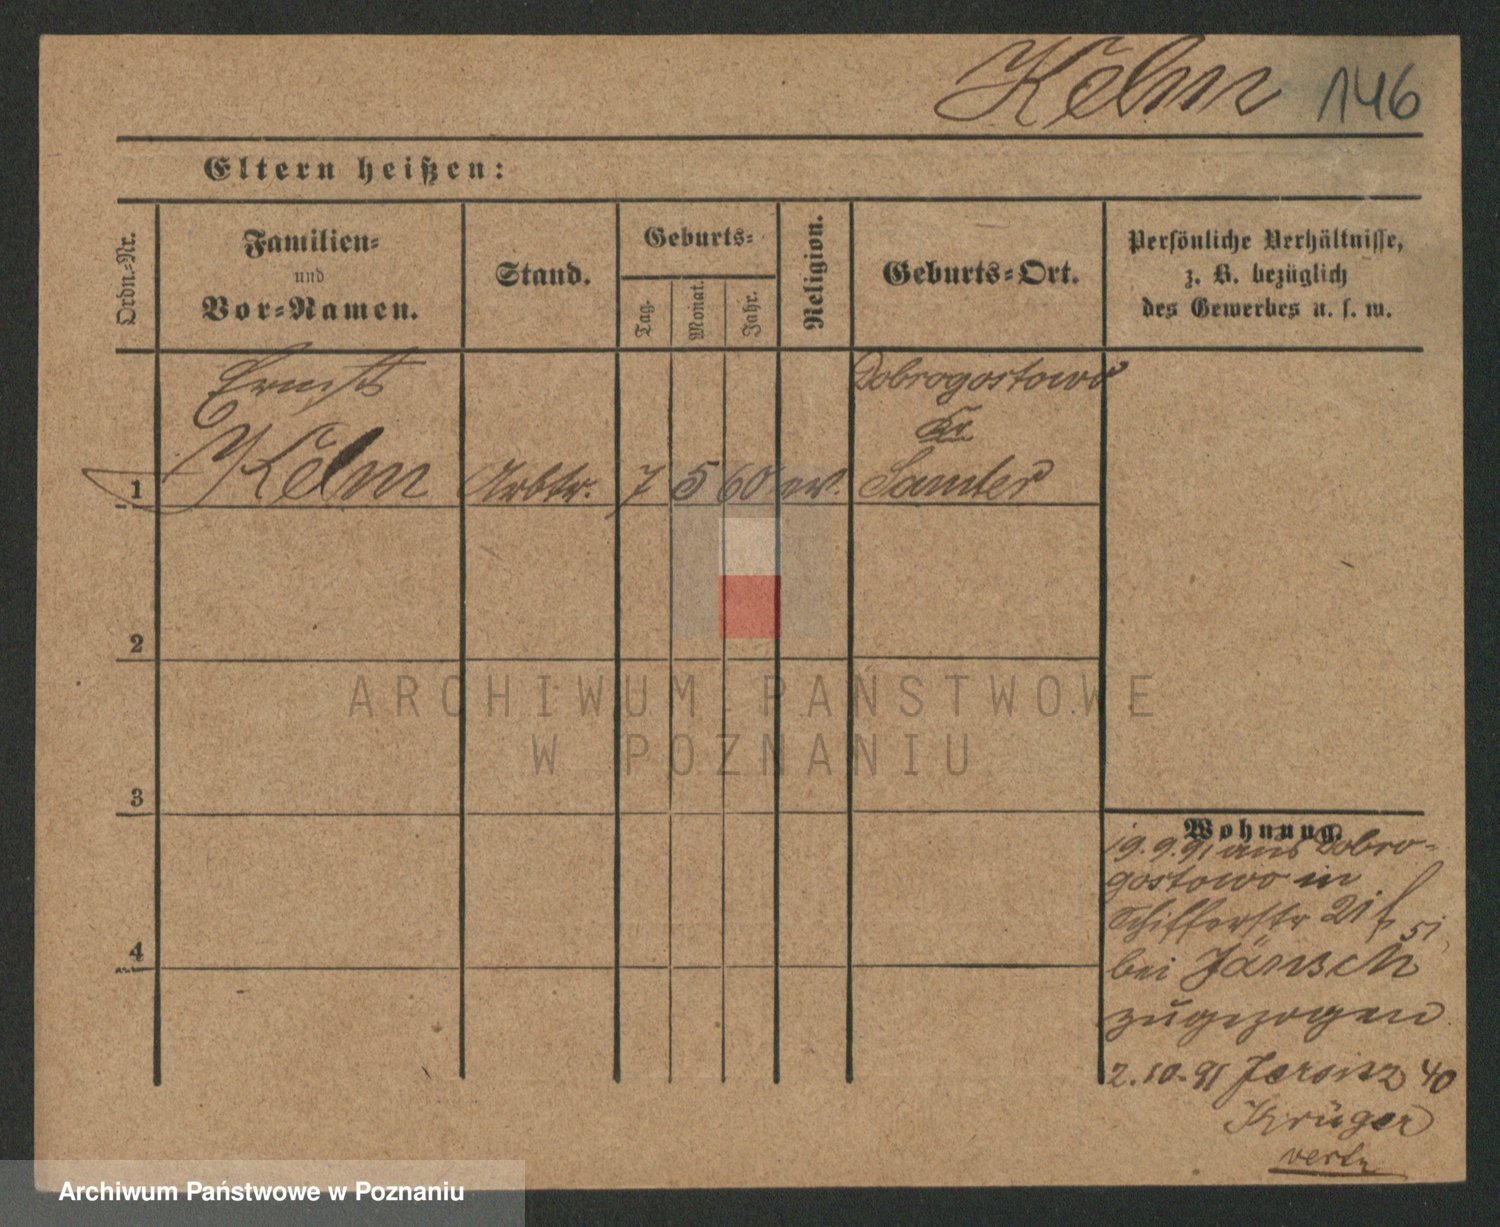 Kelm 146
Eltern heißen:
Ordn.-Nr.
Familien-
und
Vor-Namen.
Stand.
Geburts-
Tag.
Monat.
Jahr.
Religion.
Geburts-Ort.
Persönliche Verhältnisse,
z. B. bezüglich
des Gewerbes u. s. w.
Ernst
Kelm
Dobrogostowo
Kr.
1 Arbtr. 7 5 60 ev. Samter
2
3
4
ARCHIWUM PAŃSTWOWE
W POZNANIU
Wohnung.
19.9.91 aus Dobro-
gostowo in
Schifferstr 21
bei Jänsch
zugezogen
2.10.91 Jersitz 40
Krüger
Archiwum Państwowe w Poznaniu